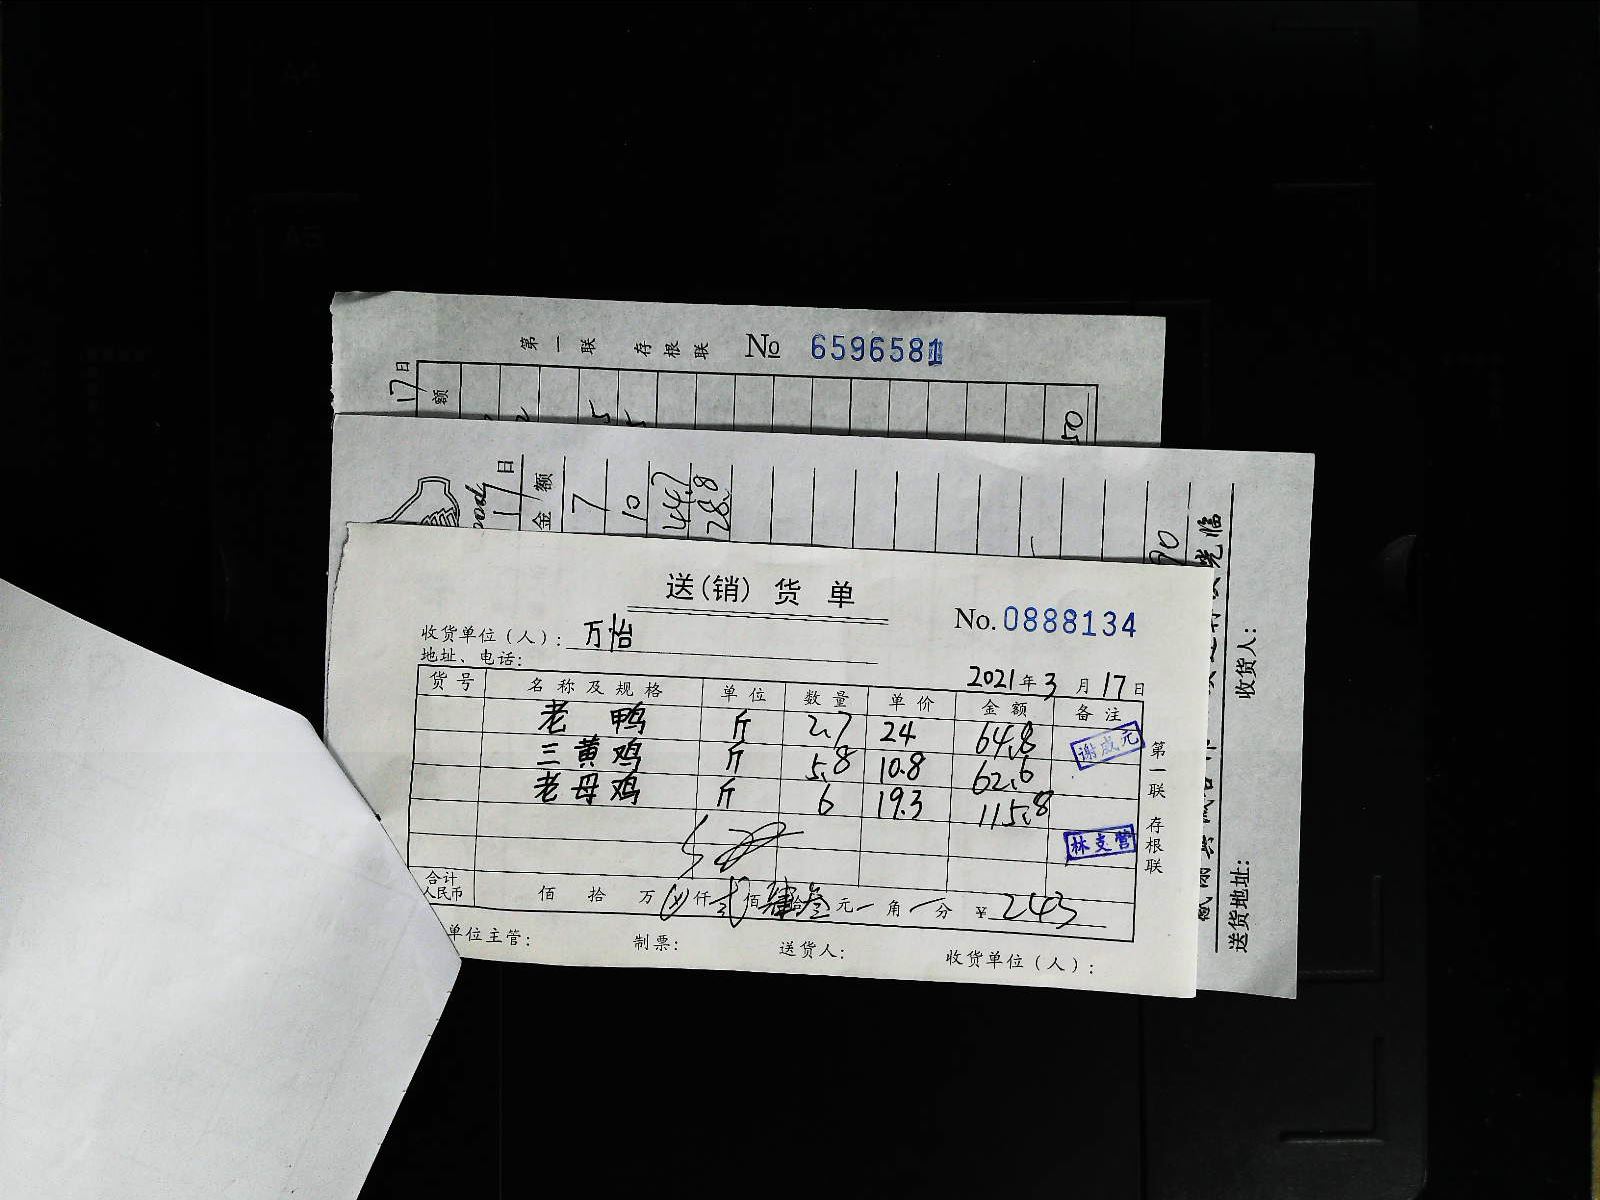 第一联 存根联 No 6596581
17日
额
50
17日
金额
7
10
44.7
28.8
90
光临
收货人:
送货地址:
送(销)货单
No. 0888134
收货单位(人): 万怡
地址、电话:
2021年3月17日
货号 名称及规格 单位 数量 单价 金额 备注
老鸭 斤 2.7 24 64.8
谢成元
三黄鸡 斤 5.8 10.8 62.6
老母鸡 斤 6 19.3 115.8
林支营
第一联 存根联
合计人民币 佰 拾 万 仟 贰 佰 肆 拾 叁 元 角 分 ¥ 243
单位主管: 制票: 送货人: 收货单位(人):